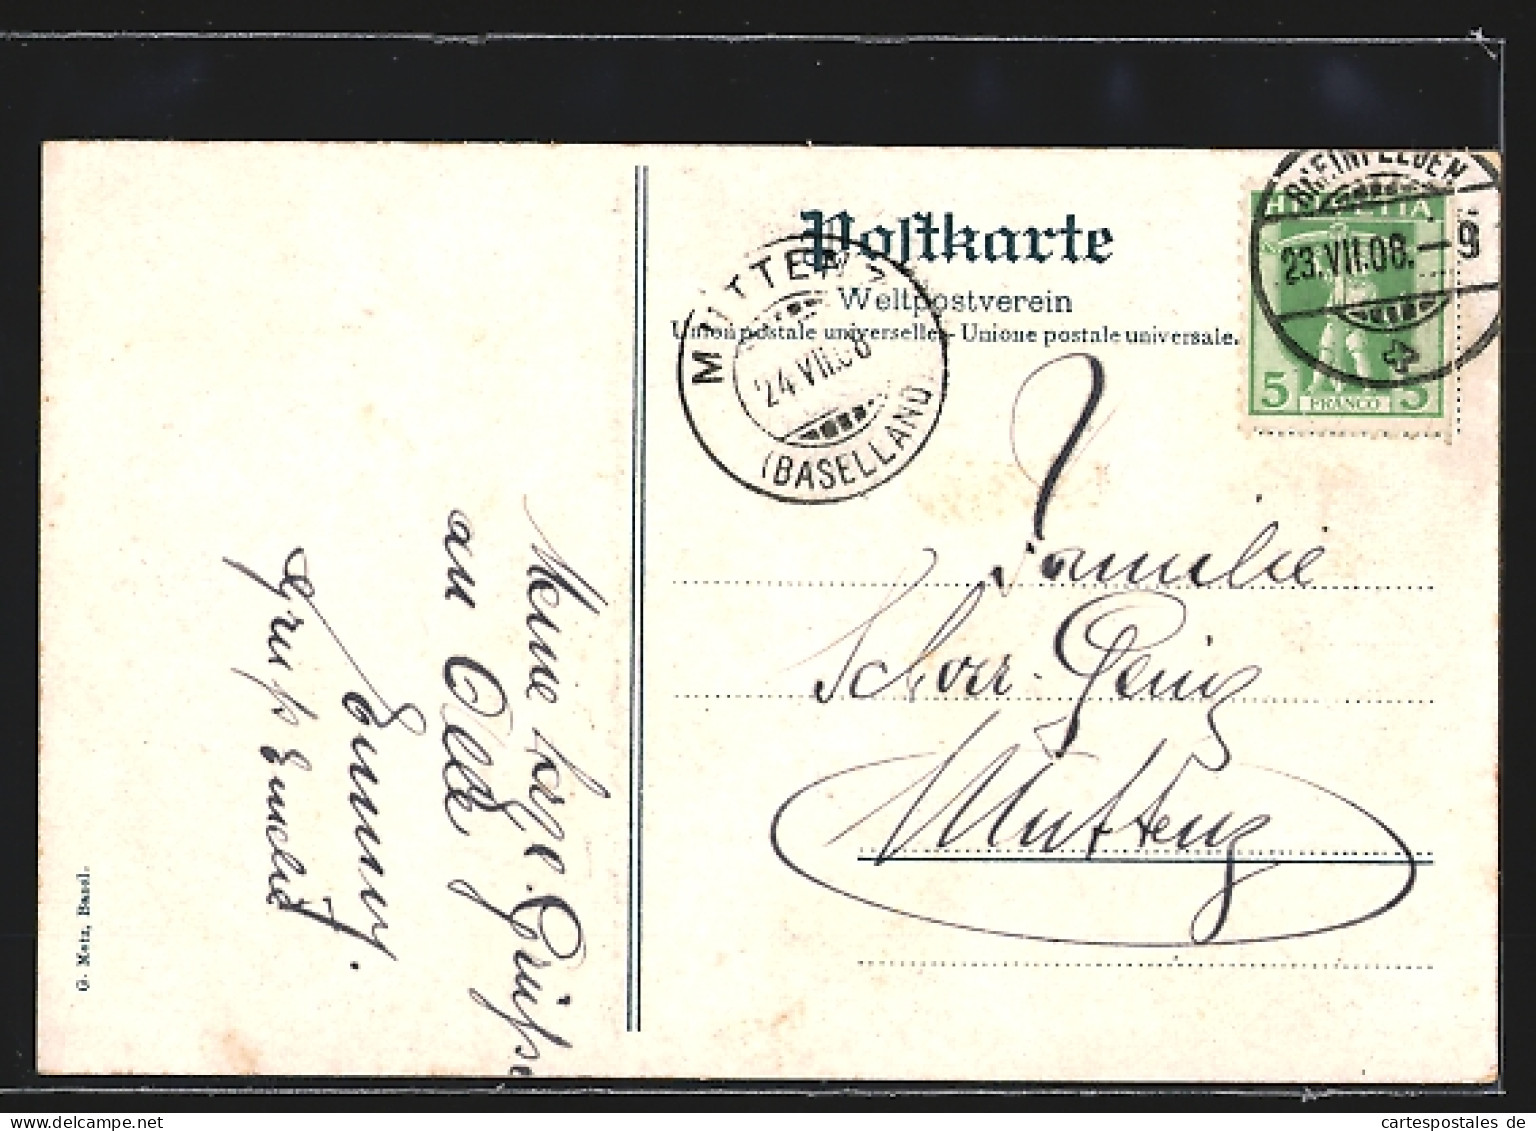 Postkarte
Weltpostverein
Union postale universelle - Unione postale universale.
MUTTENZ
24.VII.08
(BASELLAND)
RHEINFELDEN
23.VII.08.–9
HELVETIA
5 FRANCO 5
Familie
Schorr-Genz
Muttenz
Meine Grüsse
an Alle
Emmy.
Gruss Emelie
G. Metz, Basel.
cartespostales de